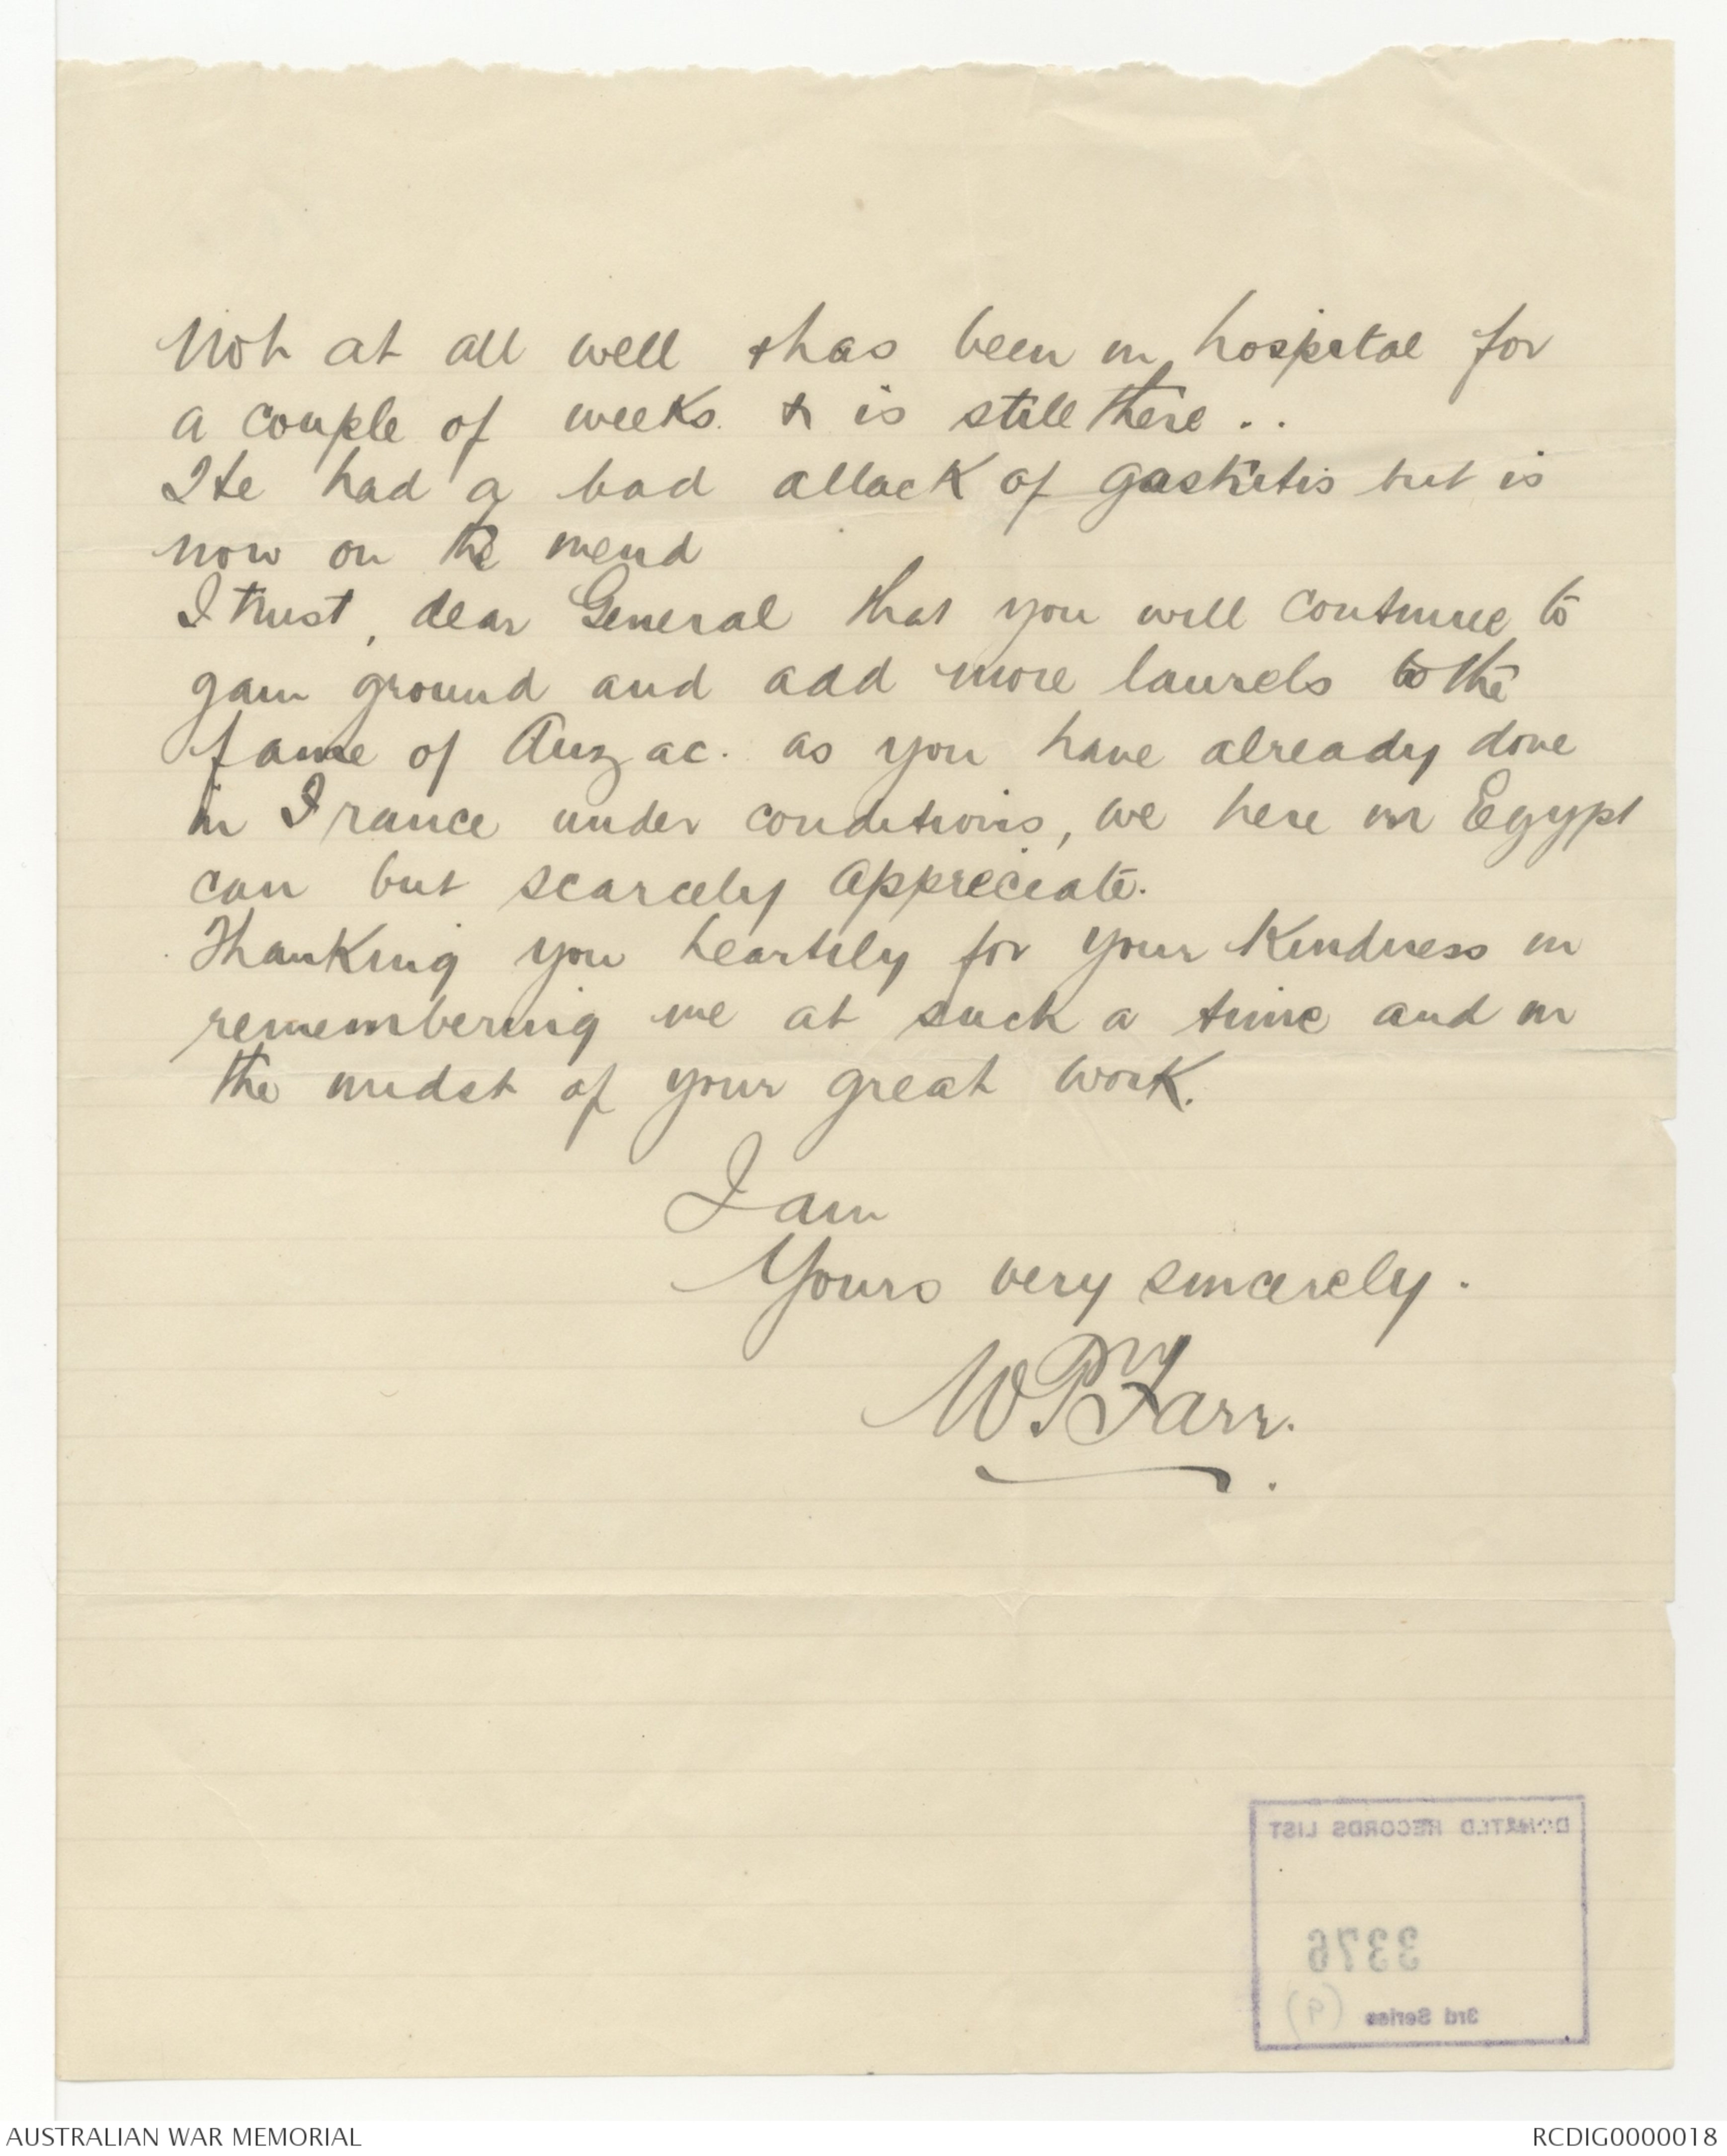 Not at all well & has been in hospital for
a couple of weeks. & is still there..
He had a bad attack of gastritis but is
now on the mend
I trust, dear General that you will continue to
gain ground and add more laurels to the
fame of Anzac. as you have already done
in France under conditions, we here in Egypt
can but scarcely appreciate.
Thanking you heartily for your kindness in
remembering me at such a time and in
the midst of your great work.
I am
Yours very sincerely.
W.P. Farr.
DONATED RECORDS LIST
3376
3rd Series (9)
AUSTRALIAN WAR MEMORIAL
RCDIG0000018